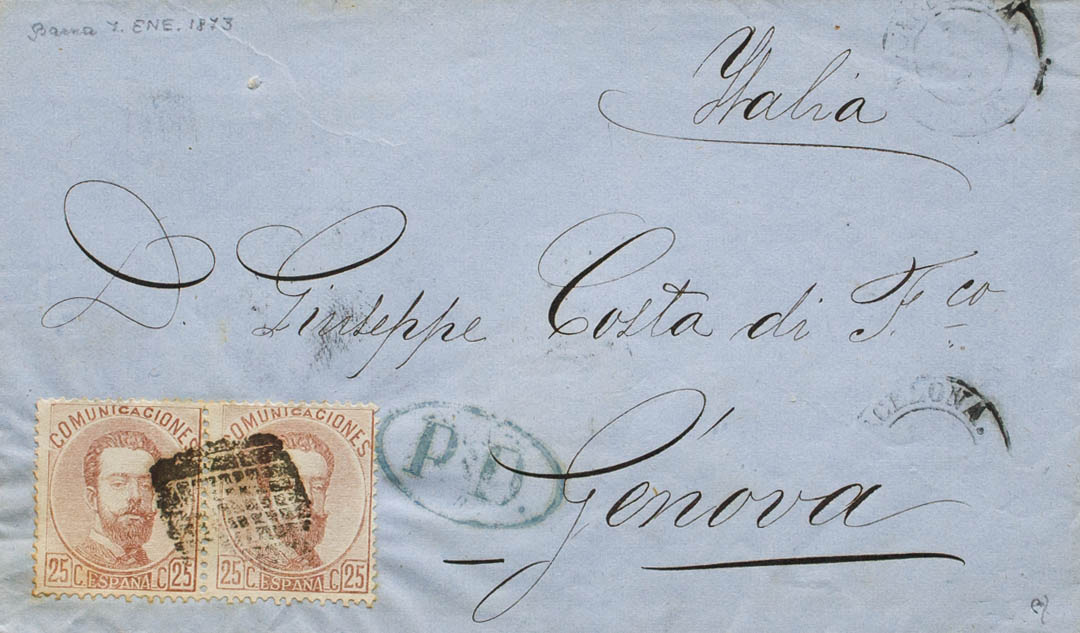 Barna 7. ENE. 1873
Italia
D. Giuseppe Costa di F.co
Génova
COMUNICACIONES
25 C. ESPAÑA C 25
COMUNICACIONES
25 C. ESPAÑA C 25
P.D.
CELONA.